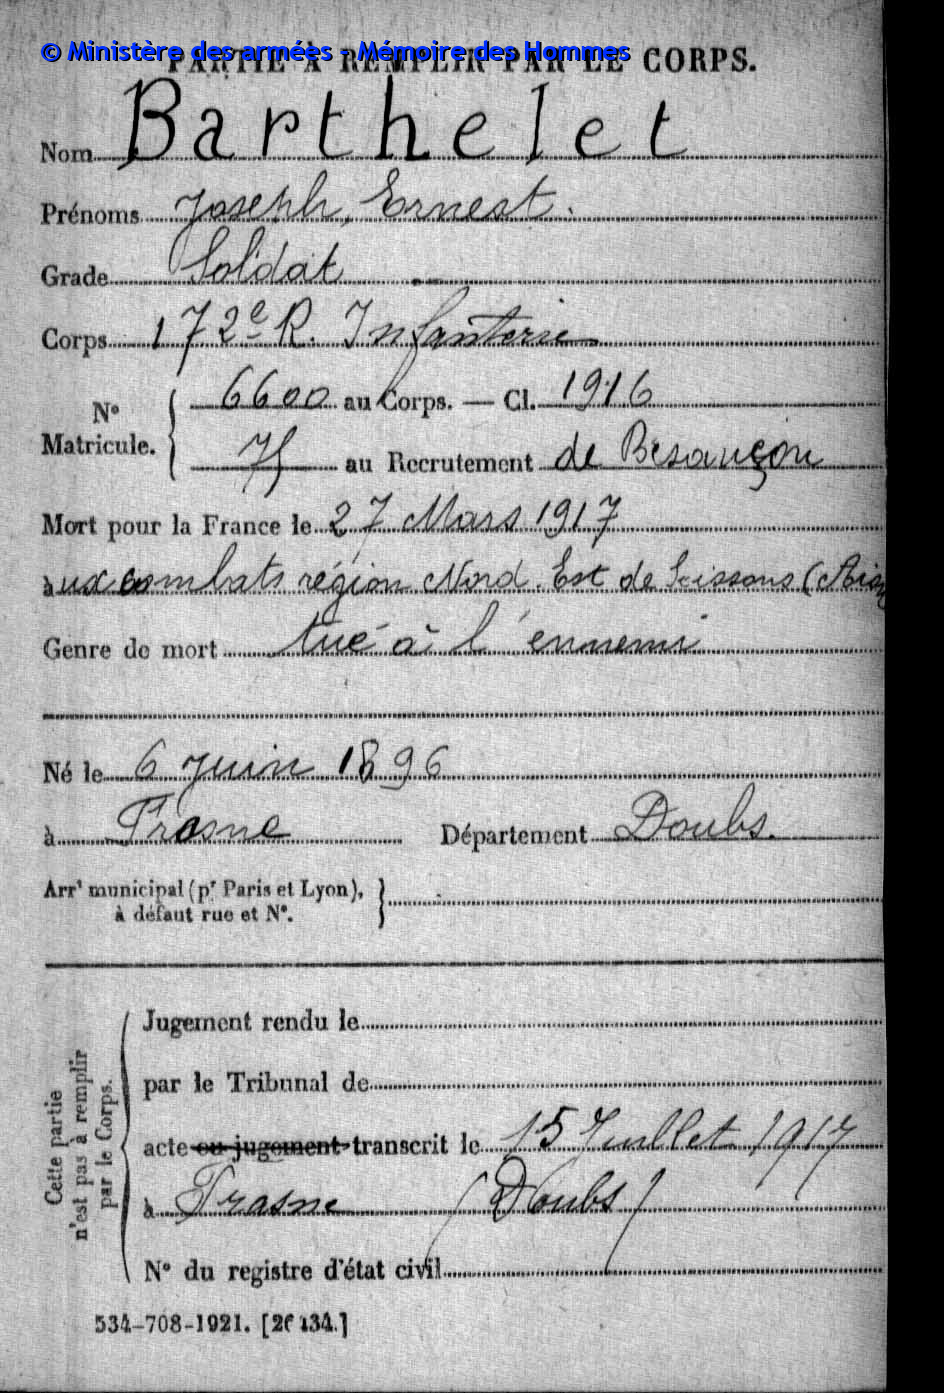 © Ministère des armées - Mémoire des Hommes
PARTIE À REMPLIR PAR LE CORPS.
Nom Barthelet
Prénoms Joseph, Ernest.
Grade Soldat
Corps 172e R. Infanterie
N° Matricule. 6600 au Corps. — Cl. 1916
75 au Recrutement de Besançon
Mort pour la France le 27 Mars 1917
aux combats région Nord. Est de Soissons (Aisn
Genre de mort tué à l'ennemi
Né le 6 Juin 1896
à Frasne Département Doubs.
Arrt municipal (pr Paris et Lyon),
à défaut rue et N°.
Cette partie
n'est pas à remplir
par le Corps.
Jugement rendu le
par le Tribunal de
acte ou jugement transcrit le 15 Juillet 1917
à Frasne (Doubs)
N° du registre d'état civil
534-708-1921. [26434.]